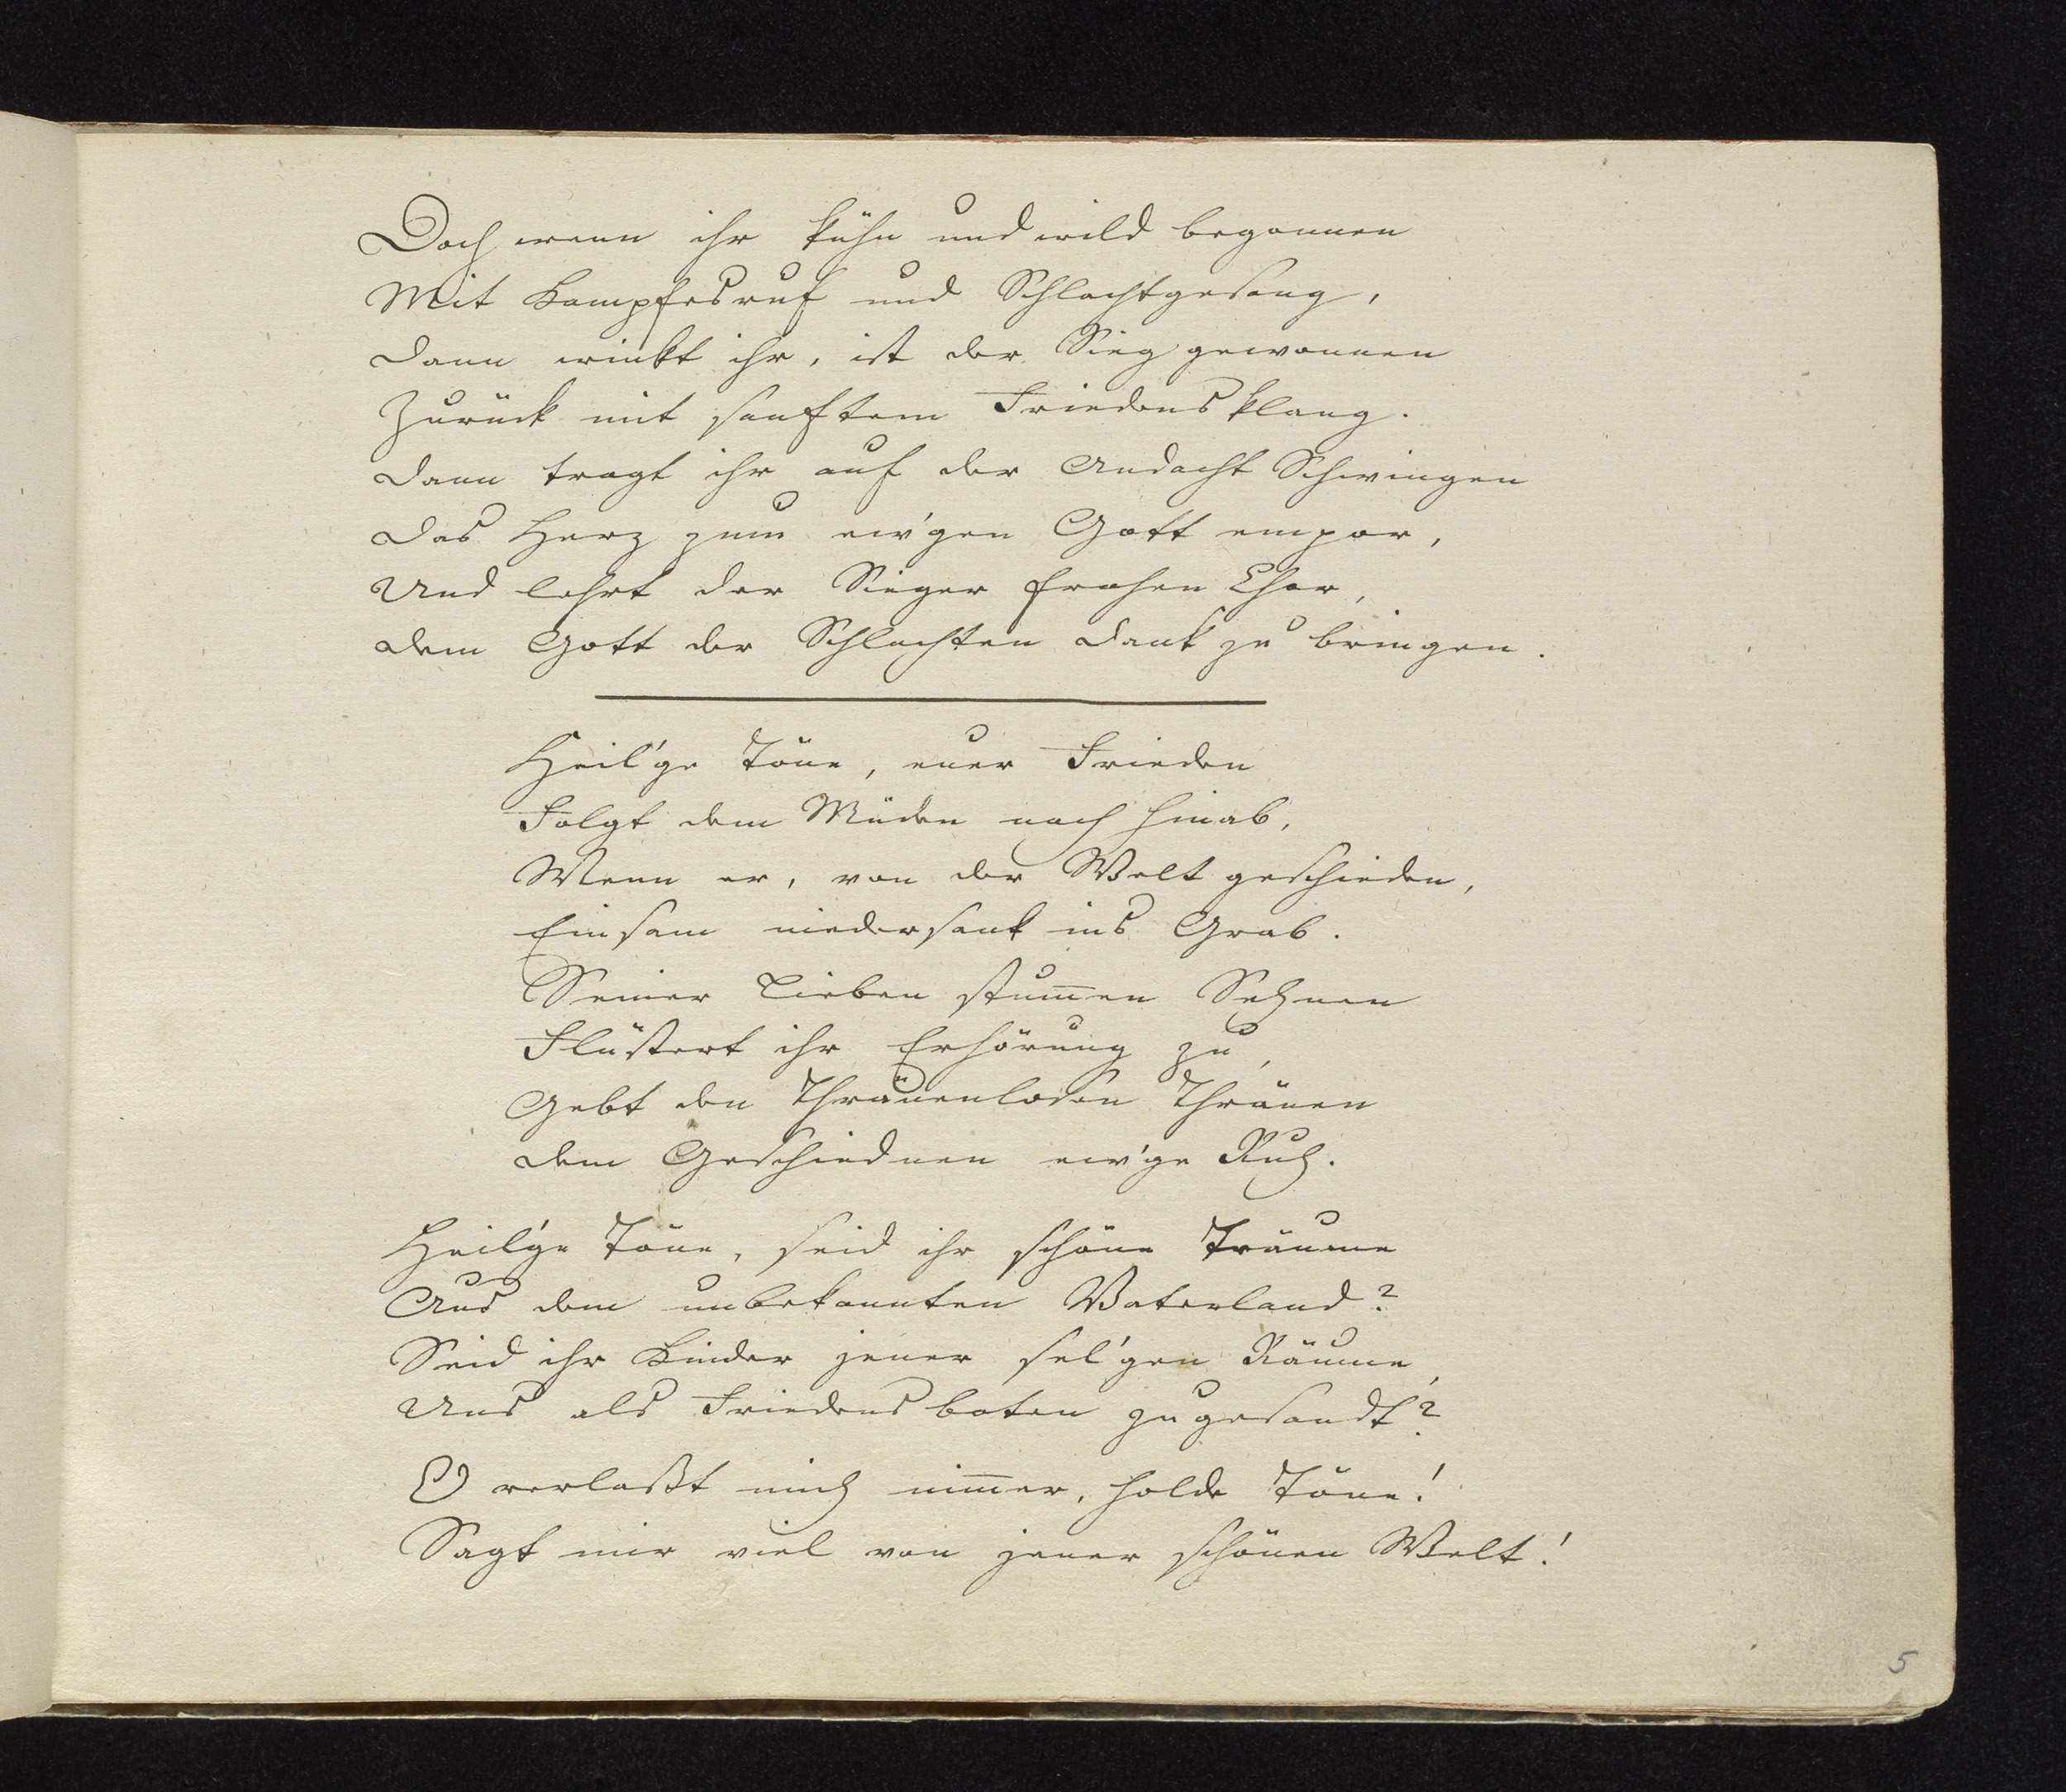 Doch wenn ihr kühn und wild begonnen
Mit Kampfesruf und Schlachtgesang,
Dann winkt ihr, ist der Sieg gewonnen
Zurück mit sanftem Friedensklang.
Dann tragt ihr auf der Andacht Schwingen
Das Herz zum ew'gen Gott empor,
Und lehrt der Sieger frohen Chor,
Dem Gott der Schlachten Dank zu bringen.
Heil'ge Töne, euer Frieden
Folgt dem Müden nach hinab,
Wenn er, von der Welt geschieden,
Einsam niedersank ins Grab.
Seiner Lieben stum̅en Sehnen
Flüstert ihr Erhörung zu,
Gebt den Thränenlosen Thränen
Dem Geschiednen ew'ge Ruh.
Heil'ge Töne, seid ihr schöne Träume
Aus dem unbekannten Vaterland?
Seid ihr Kinder jener sel'gen Räume,
Uns als Friedensboten zugesandt?
O verlaßt mich nim̅er, holde Töne!
Sagt mir viel von jener schönen Welt!
5